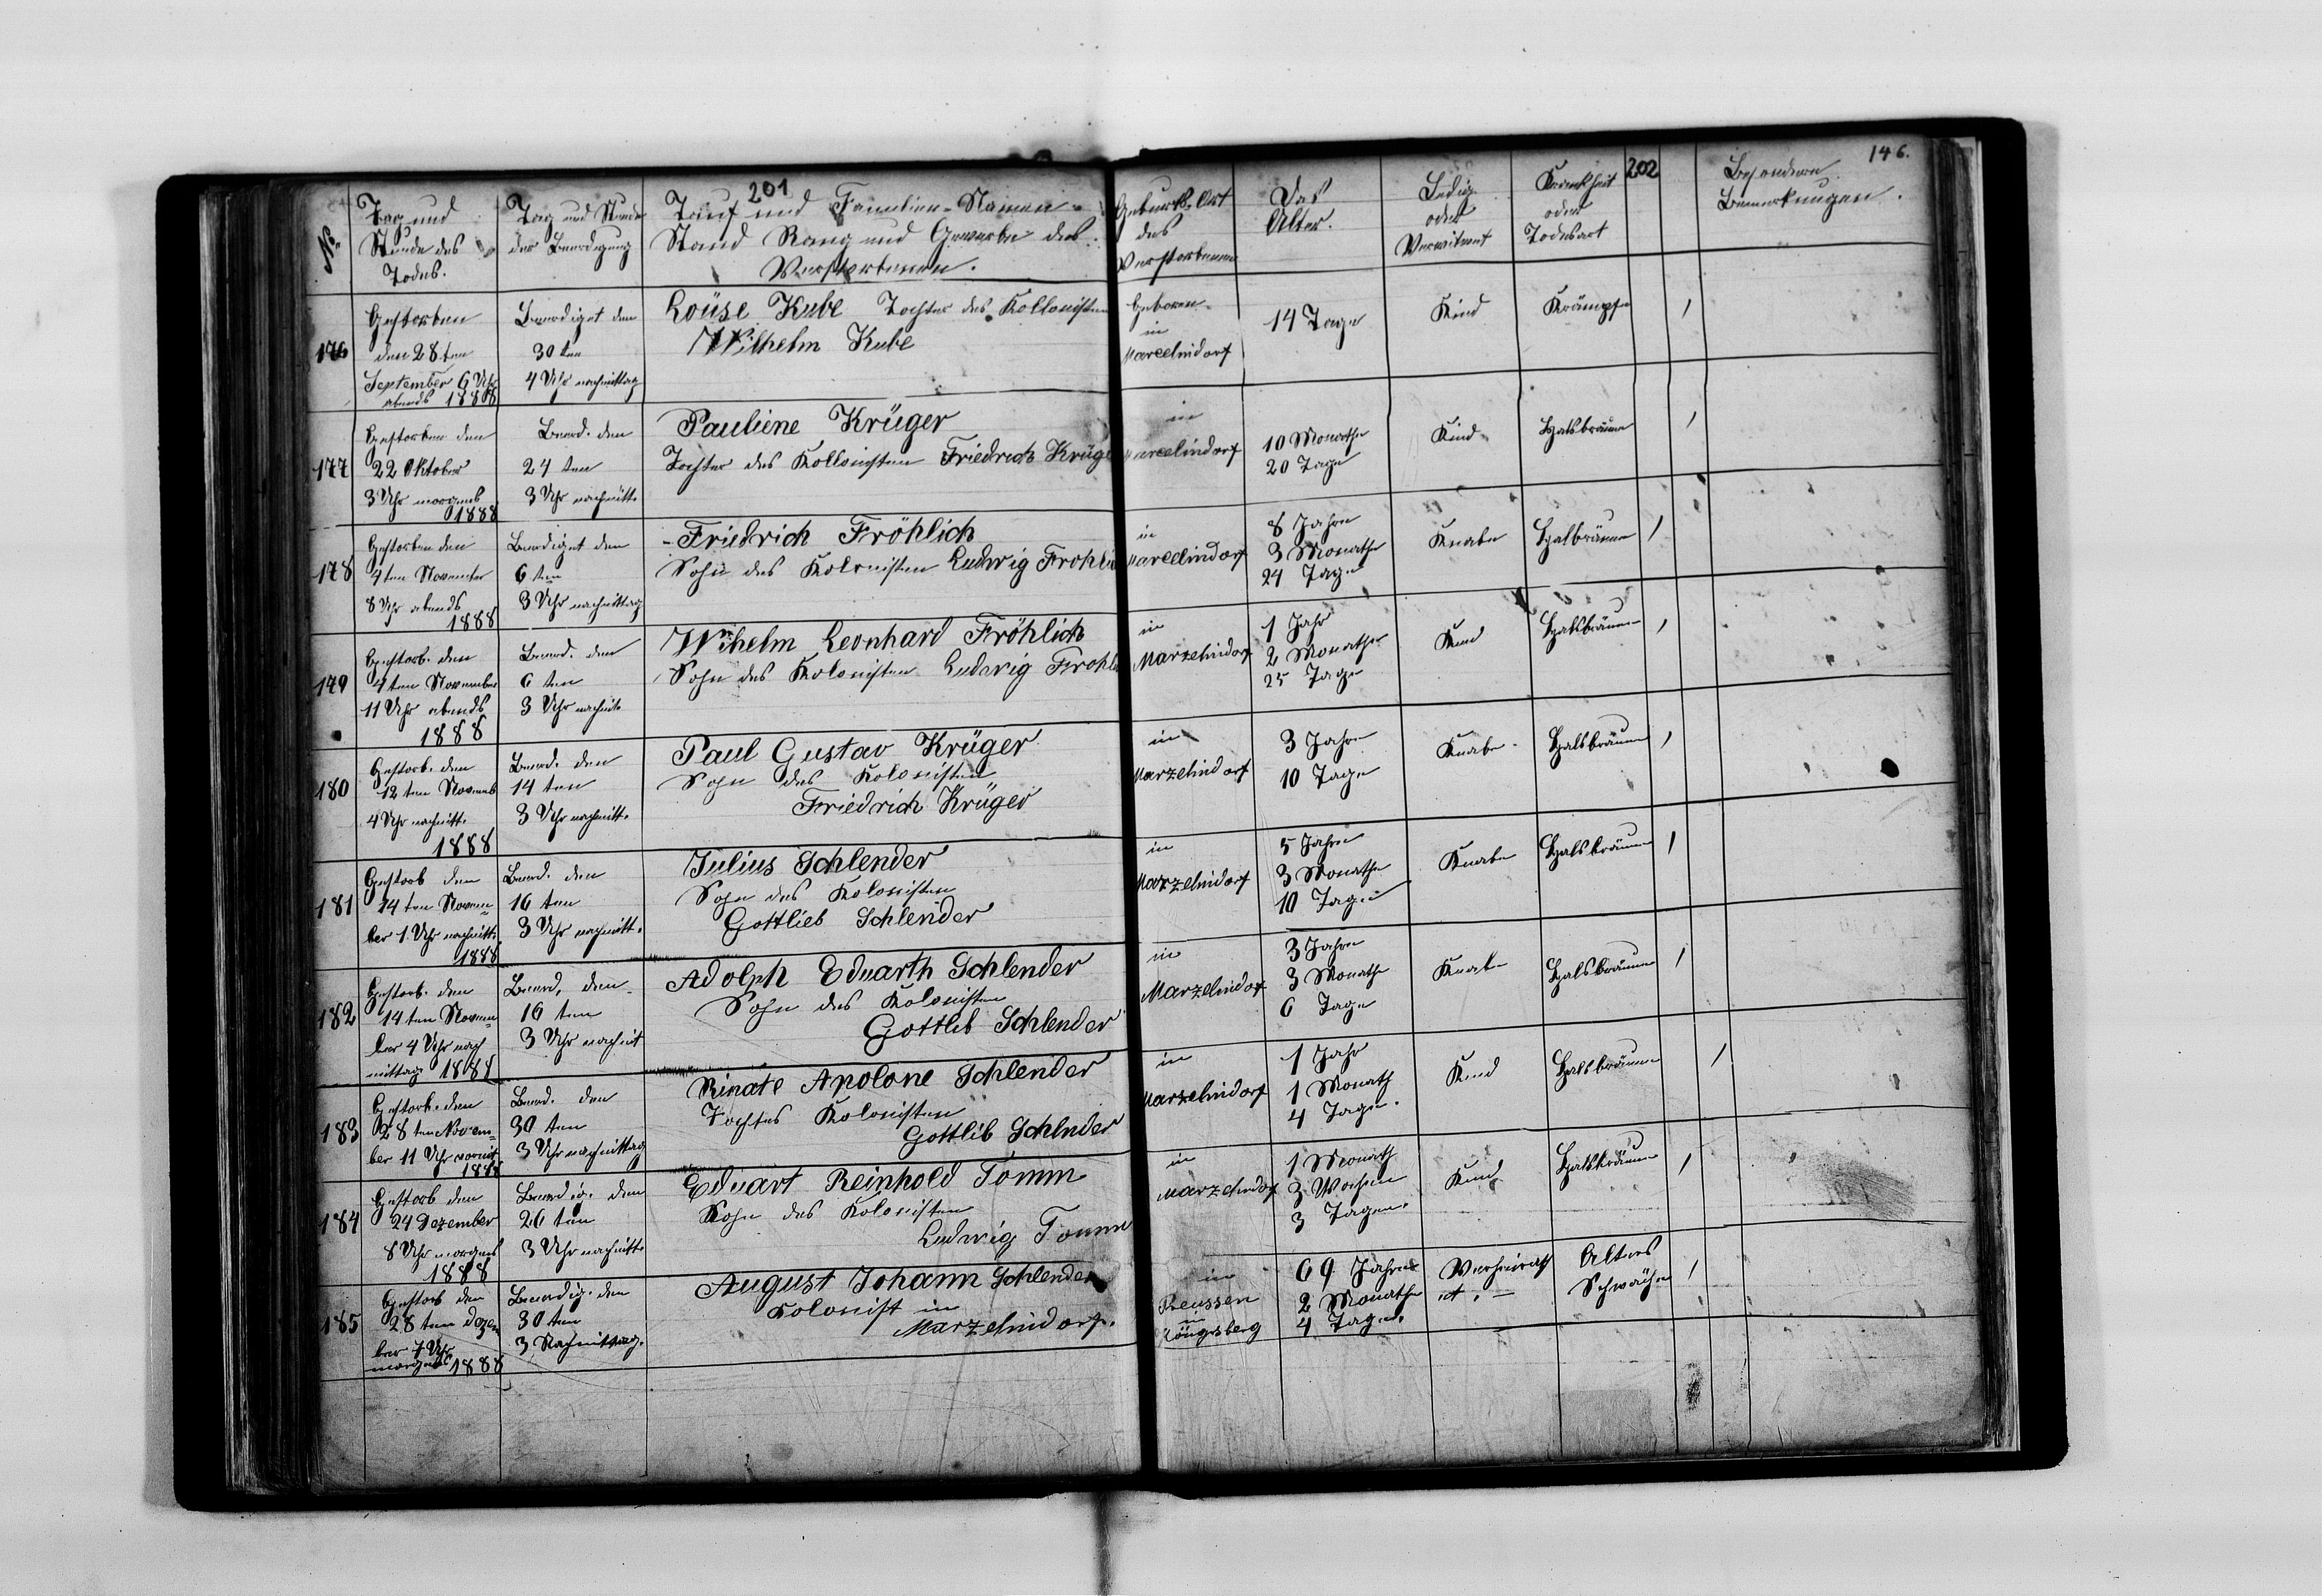 201
202
146.
No
Tag und
Stunde des
Todes.
Tag und Stunde
der Beerdigung
Tauf und Familien-Namen
Stand Rang und Gewerbe des
Verstorbenen.
Geburts-Ort
des
Verstorbenen
Das
Alter.
Ledig
oder
Verwitwet
Krankheit
oder
Todesart
Besondere
Bemerkungen.
176
Gestorben
den 28ten
September 6 Uhr
abends 1888
Beerdiget den
30 ten
4 Uhr nachmittag
Louise Kube Tochter des Kollonisten
Wilhelm Kube
Geboren
in
Marcelnidorf
14 Tage
Kind
Krämpfe
177
Gestorben den
22 Oktober
3 Uhr morgens
1888
Beerd. den
24 ten
3 Uhr nachmitt.
Pauliene Krüger
Tochter des Kollonisten Friedrich Krüge
in
Marcelindorf
10 Monathe
20 Tage
Kind
Halsbräune
178
Gestorben den
4ten November
8 Uhr abends
1888
Beerdiget den
6 ten
3 Uhr nachmittag
Friedrich Fröhlich
Sohn des Kolonisten Ludwig Frohli
in
Marcelindorf
8 Jahre
3 Monathe
24 Tage
Knabe
Halbräune
179
Gestorb. den
4ten November
11 Uhr abends
1888
Beerd. den
6 ten
3 Uhr nachmit.
Wilhelm Leonhard Fröhlich
Sohn des Kolonisten Ludwig Frohli
in
Marzelindorf
1 Jahr
2 Monathe
25 Tage
Kind
Halsbräune
180
Gestorb. den
12 ten Novemb
4 Uhr nachmitt.
1888
Beerd. den
14 ten
3 Uhr nachmitt.
Paul Gustav Krüger
Sohn des Kolonisten
Friedrich Krüger
in
Marzelindorf
3 Jahre
10 Tage
Knabe
Halsbräune
181
Gestorb den
14 ten Novem=
ber 1 Uhr nachmitt.
1888
Beerd. den
16 ten
3 Uhr nachmitt.
Julius Schlender
Sohn des Kolonisten
Gottlieb Schlender
in
Marzelindorf
5 Jahre
3 Monathe
10 Tage
Knabe
Halsbräune
182
Gestorb. den
14 ten Novem=
ber 4 Uhr nach
mittag 1888
Beerd. den
16 ten
3 Uhr nachmit
Adolph Eduarth Schlender
Sohn des Kolonisten
Gottlib Schlender
in
Marzelindorf
3 Jahre
3 Monathe
6 Tage
Knabe
Halsbräune
183
Gestorb. den
28 ten Novem=
ber 11 Uhr vormit
1888
Beerd. den
30 ten
3 Uhr nachmittag
Rinate Apolone Schlender
Tochter Kolonisten
Gottlib Schlnder
in
Marzelindorf
1 Jahr
1 Monath
4 Tage.
Kind
Halsbräune
184
Gestorb den
24 Dezember
8 Uhr morgens
1888
Beerdig. den
26 ten
3 Uhr nachmitt.
Eduart Reinhold Tomm
Sohn des Kolonisten
Ludwig Tomm
in
Marzelindorf
1 Monath
3 Wochen
3 Tagen.
Kind
Halsbräune
185
Gestorb den
28 ten Dezem
ber 7 Uhr
morgens 1888
Beerdig. den
30 ten
3 Nachmittag.
August Johann Schlender
Kolonist in
Marzelindorf.
in
Preussen
in
Köngsberg
69 Jahre
2 Monathe
4 Tage.
Verheirath
et.
Alters
Schwäche